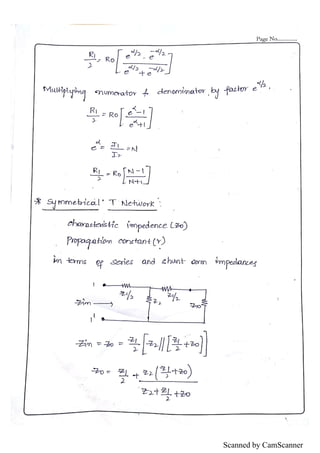 Page No..............
R1/2 = R0 [ (e^α/2 - e^-α/2) / (e^α/2 + e^-α/2) ]
Multiplying numerator & denominator by factor e^α/2.
R1/2 = R0 [ (e^α - 1) / (e^α + 1) ]
e^α = I1/I2 = N
R1/2 = R0 [ (N-1) / (N+1) ]
* Symmetrical T Network :
characteristic impedence (Z0)
Propagation constant (r)
in terms of series and shunt arm impedances
1 Z1/2 Z1/2
Zin → Z2 Z0
1'
Zin = Z0 = Z1/2 [ Z2 || [ Z1/2 + Z0 ) ]
Z0 = Z1/2 + Z2 ( Z1/2 + Z0 ) / Z2 + Z1/2 + Z0
Scanned by CamScanner